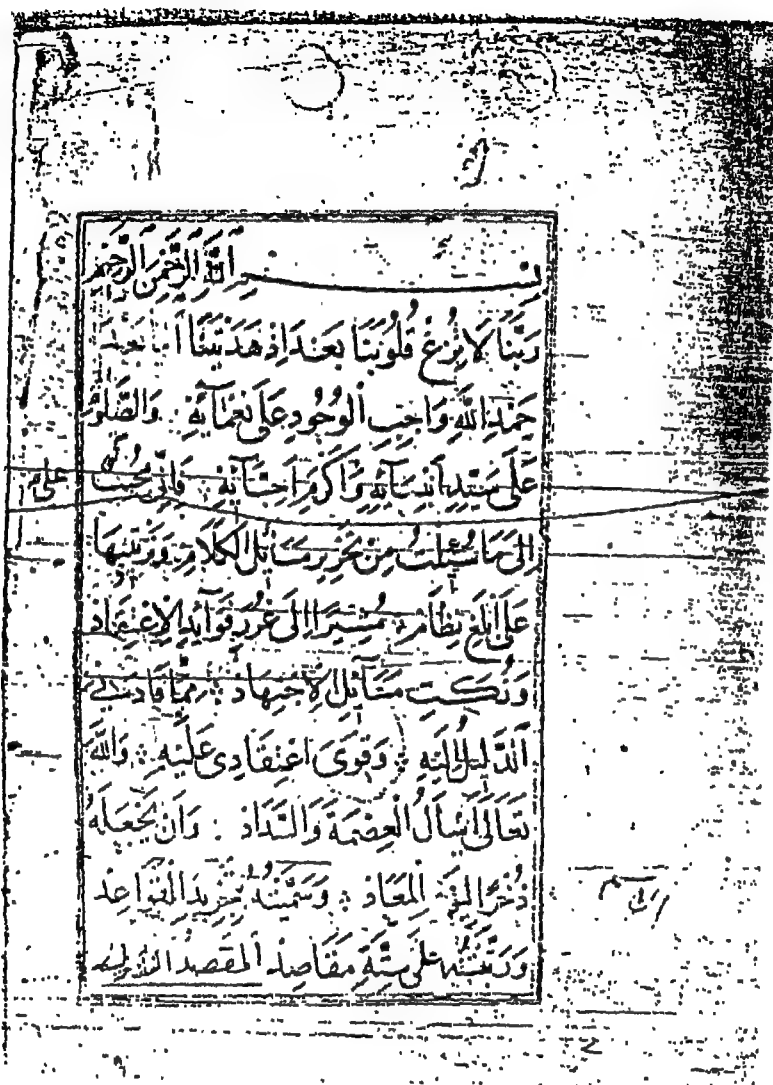 بِسْمِ اللَّهِ الرَّحْمَنِ الرَّحِيمِ
رَبَّنَا لَا تُزِغْ قُلُوبَنَا بَعْدَ اِذْ هَدَيْتَنَا
حَمْدِ اللَّهِ وَاجِبِ الْوُجُودِ عَلَى نَعْمَآئِهِ وَالصَّلَوٰةِ
عَلَى سَيِّدِ اَنْبِيَآئِهِ وَاَكْرَمِ اَحِبَّآئِهِ فَاِنِّى مُجِيبٌ
اِلَى مَا سُئِلْتُ مِنْ تَحْرِيرِ مَسَآئِلِ الْكَلَامِ وَتَرْتِيبِهَا
عَلَى اَبْلَغِ نِظَامٍ مُشِيرًا اِلَى غُرَرِ فَوَآئِدِ الْاِعْتِقَادِ
وَنُكَتِ مَسَآئِلِ الْاِجْتِهَادِ مِمَّا قَادَنِى
اَلدَّلِيلُ اِلَيْهِ وَقَوِىَ اعْتِقَادِى عَلَيْهِ وَاللَّهَ
تَعَالَى اَسْأَلُ الْعِصْمَةَ وَالسَّدَادَ وَاَنْ يَجْعَلَهُ
ذُخْرًا لِيَوْمِ الْمَعَادِ وَسَمَّيْتُهُ بِتَجْرِيدِ الْقَوَاعِدِ
وَرَتَّبْتُهُ عَلَى سِتَّةِ مَقَاصِدَ اَلْمَقْصَدُ